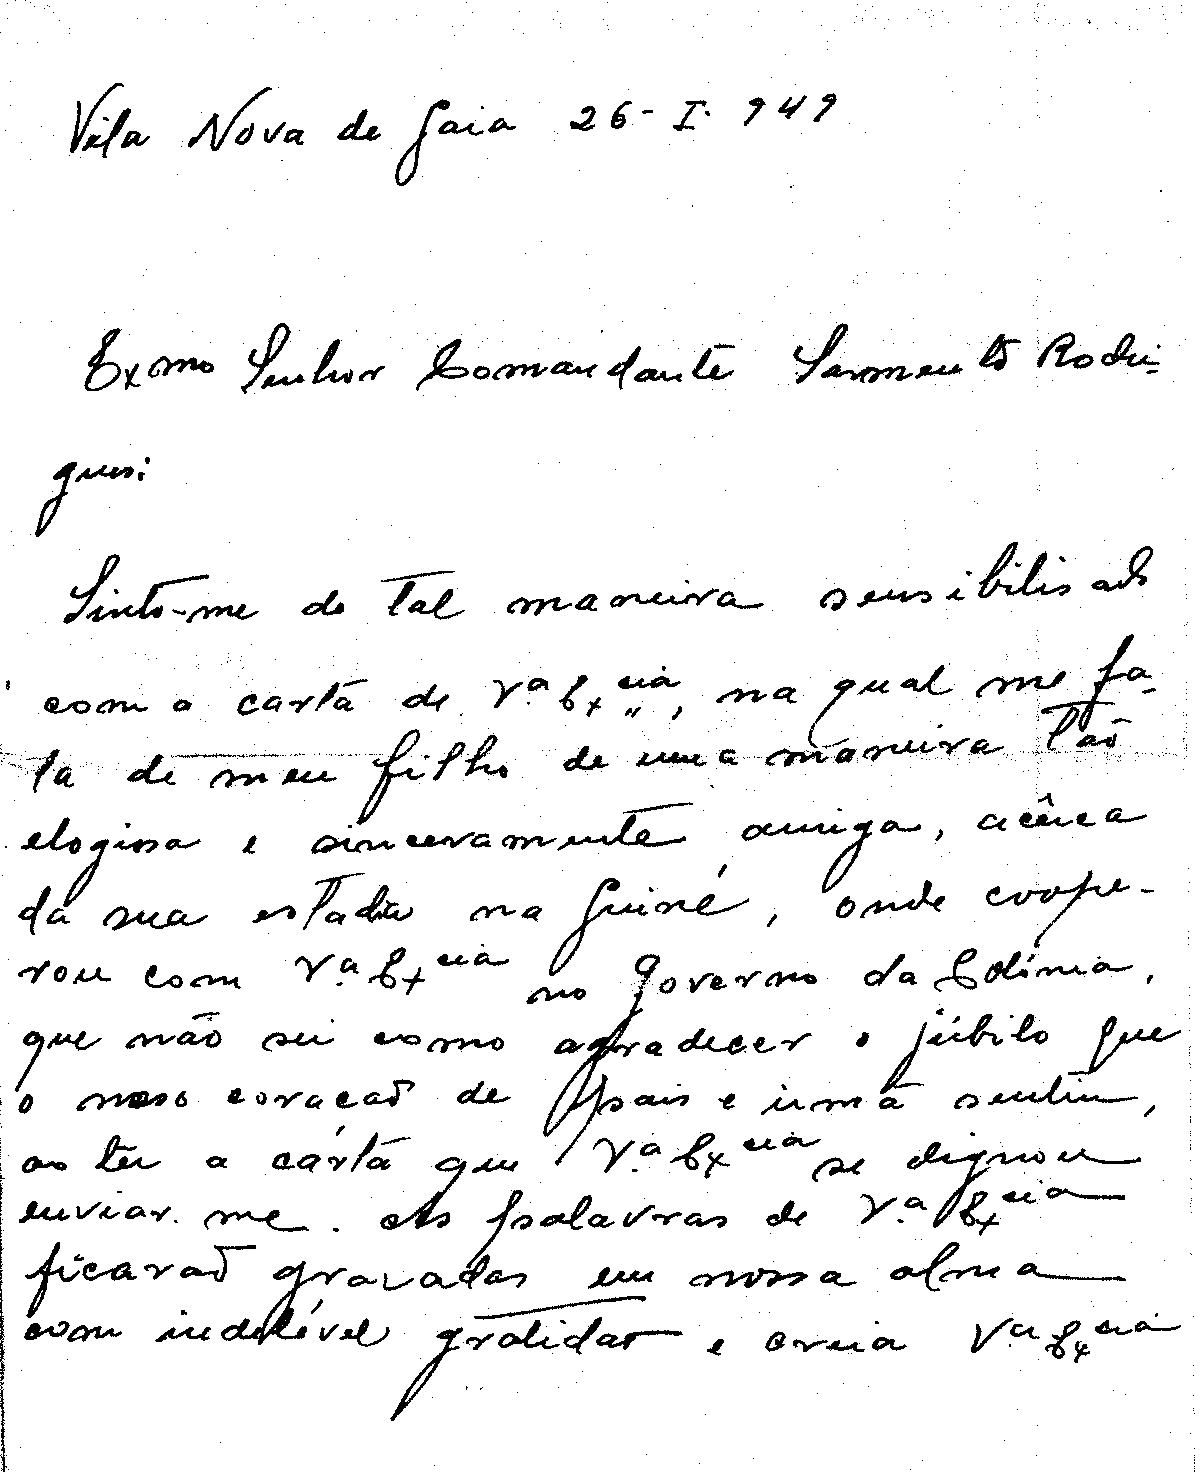 Vila Nova de Gaia 26-I-949
Exmo Senhor Comandante Sarmento Rodri-
gues:
Sinto-me de tal maneira sensibilisado
com a carta de Vª Excia, na qual me fa-
la de meu filho de uma maneira tão
elogiosa e sinceramente amiga, acêrca
da sua estadia na Guiné, onde coope-
rou com Vª Excia no Governo da Colónia,
que não sei como agradecer o júbilo que
o nosso coração de pais e irmã sentiu,
ao ler a carta que Vª Excia se dignou
enviar-me. As palavras de Vª Excia
ficarão gravadas em nossa alma
com indelével gratidão e creia Vª Excia